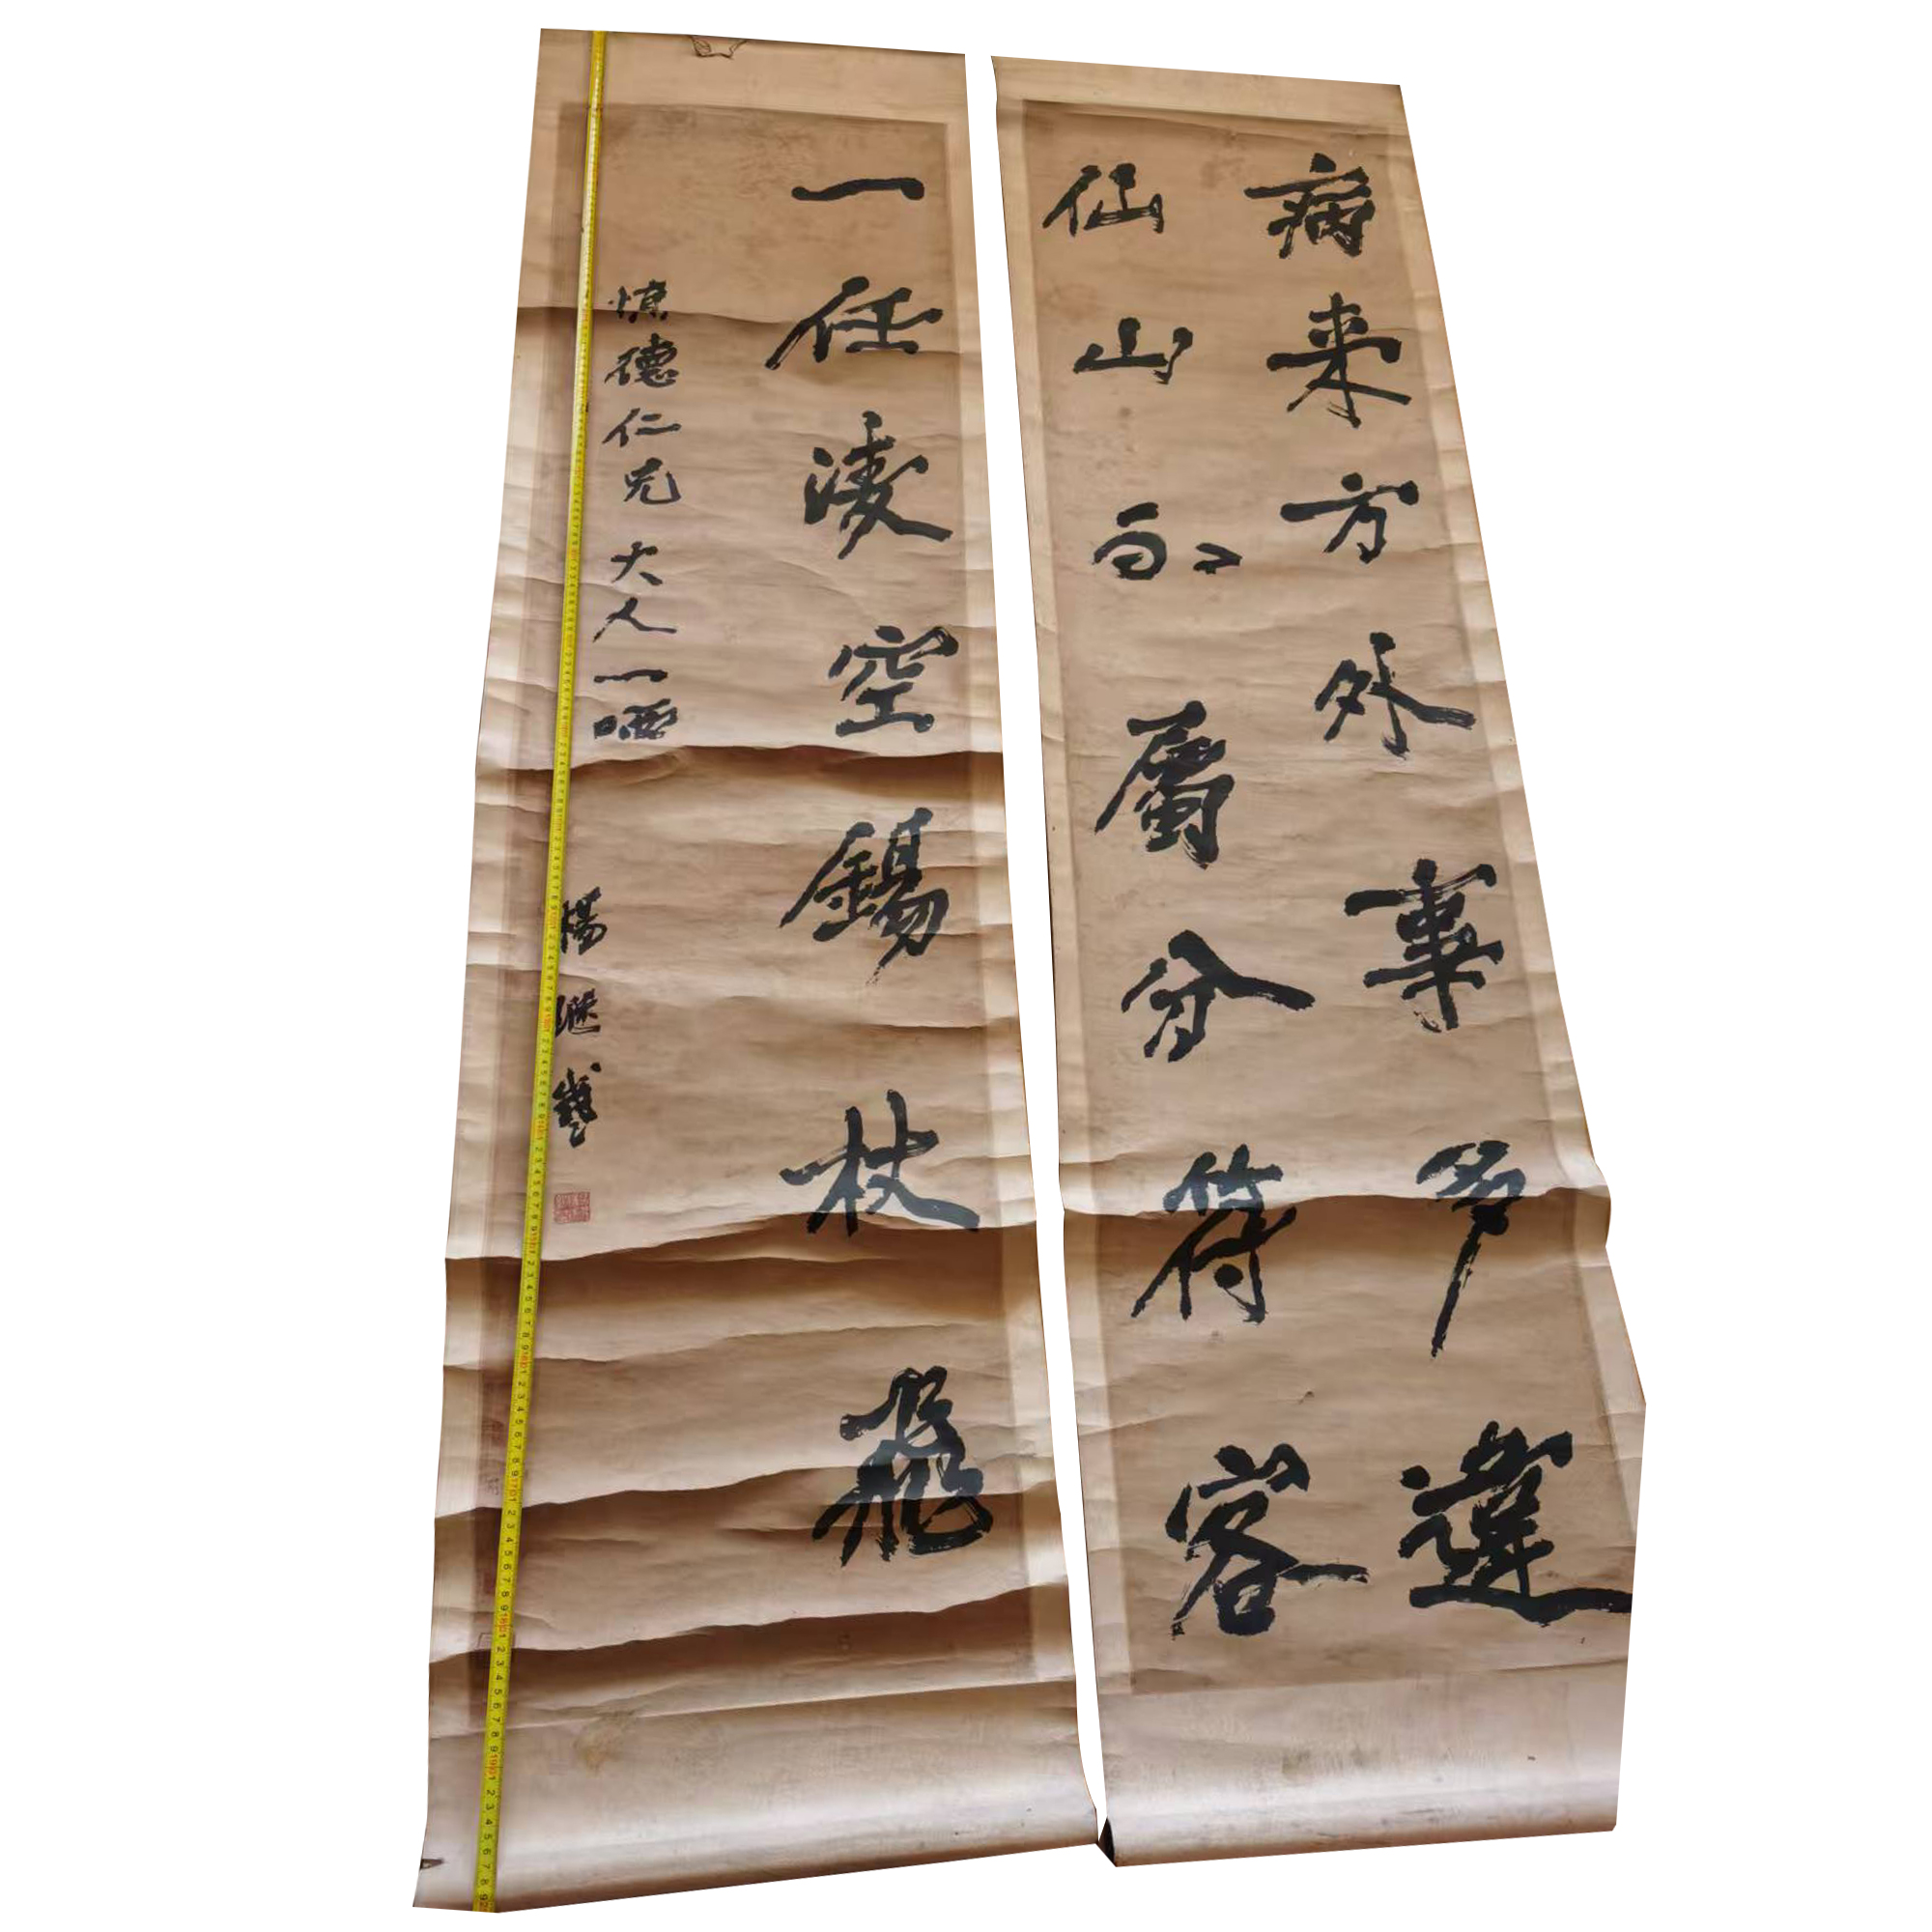 病来方外事多違
仙山不屬分符客
一任凌空錫杖飛
慎德仁兄大人一哂
楊繼